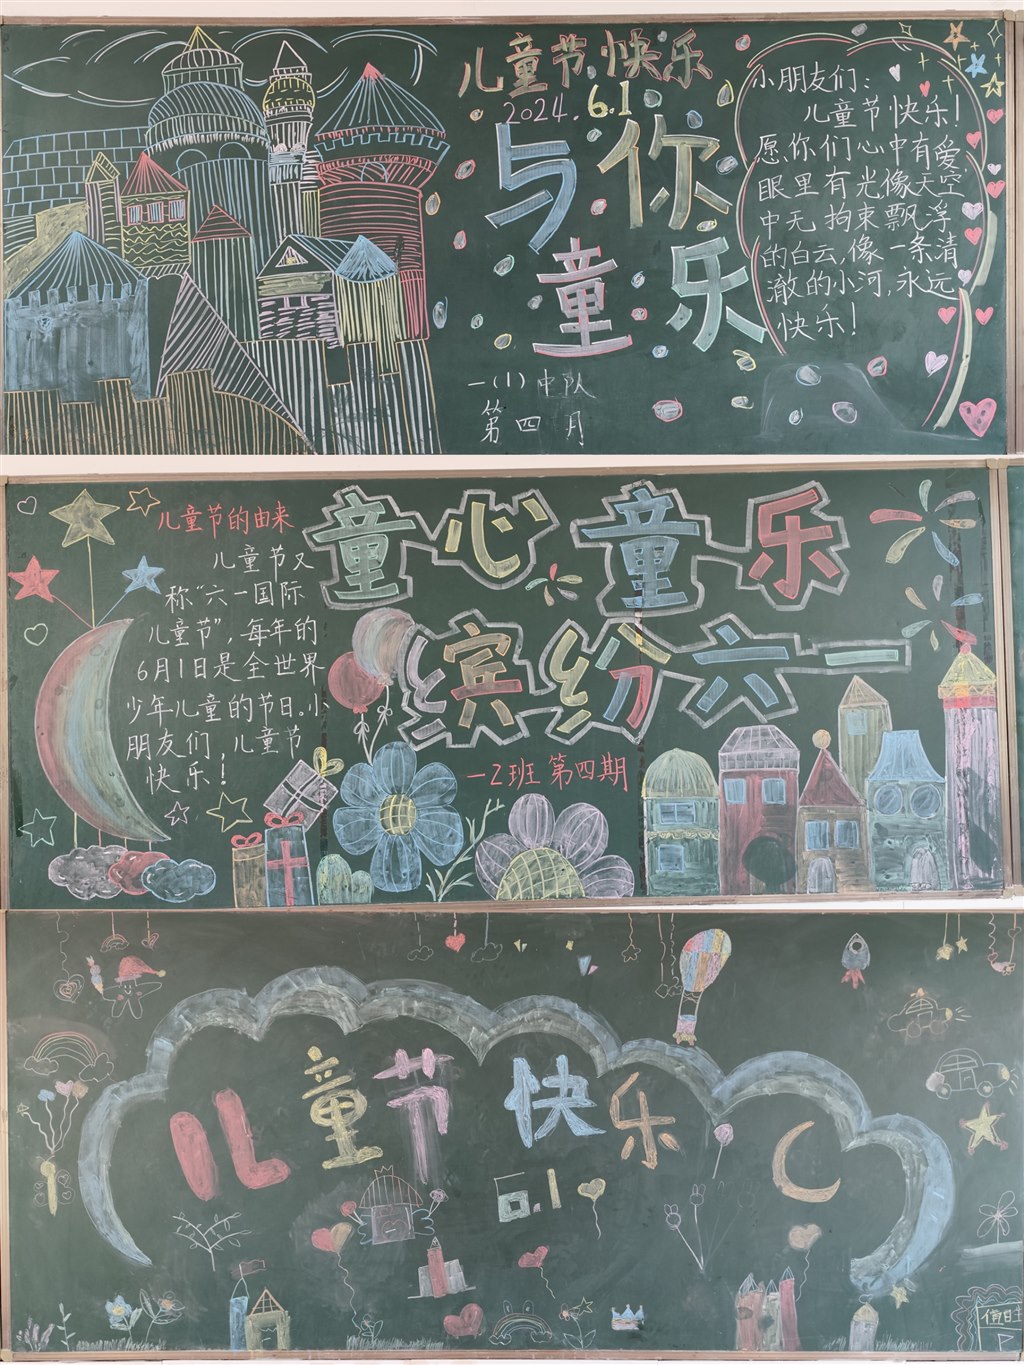 儿童节快乐
2024.6.1
与你
童乐
一(1)中队
第四月
小朋友们:
儿童节快乐!
愿你们心中有爱
眼里有光,像天空
中无拘束飘浮
的白云,像一条清
澈的小河,永远
快乐!
儿童节的由来
儿童节又
称“六一国际
儿童节”,每年的
6月1日是全世界
少年儿童的节日。小
朋友们,儿童节
快乐!
童心童乐
缤纷六一
一2班第四期
儿童节快乐
6.1